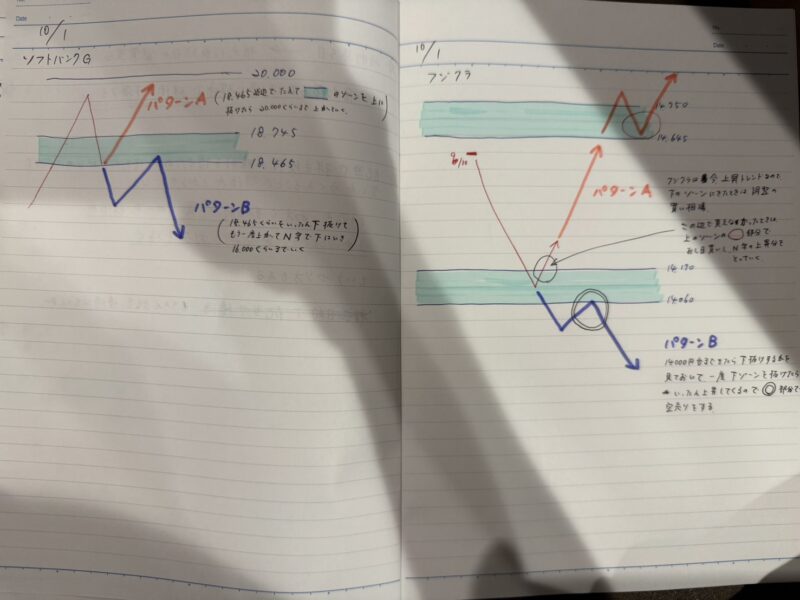 10/1
ソフトバンクG
20.000
パターンA
(18.465近辺でたんて のゾーンを上に
抜けたら 20.000くらいまで上がっていく。
18.745
18.465
パターンB
18.465くらいをいったん下抜けて
もう一度上がってN字で下にいき
16000くらいまでいく
10/1
フジクラ
14.750
14.645
9/30
パターンA
フジクラは今上昇トレンドなので、
下のゾーンにきたときは調整の
買い相場
この辺で買えなかったときは
上のゾーンの 部分で
おし目買いし、N字の上昇分を
とっていく。
14.190
14.060
パターンB
14000円台まできたら下抜けするかを
見ておいて、一度下ゾーンを抜けたら
いったん上昇してくるので 部分で
空売りをする